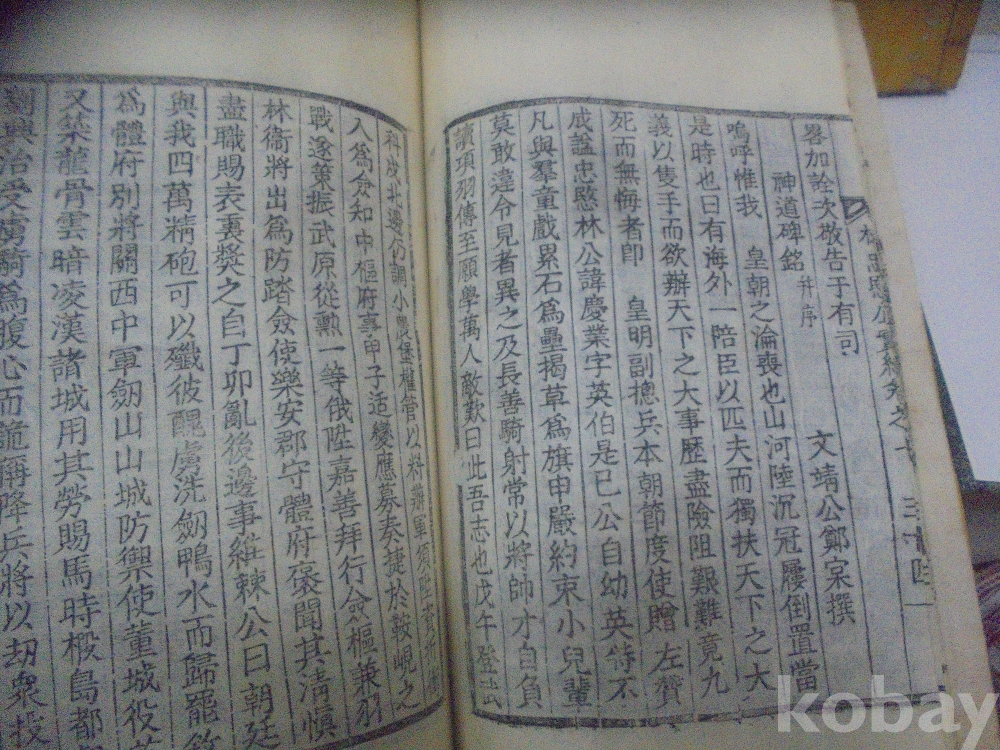 畧加詮次敬告于有司
神道碑銘 幷序 文靖公鄭寀撰
嗚呼惟我 皇朝之淪喪也山河陸沉冠屨倒置當
是時也曰有海外一陪臣以匹夫而獨扶天下之大
義以隻手而欲辦天下之大事歷盡險阻艱難竟九
死而無悔者卽 皇明副摠兵本朝節度使贈 左贊
成謚忠愍林公諱慶業字英伯是已公自幼英特不
凡與羣童戲累石爲壘揭草爲旗申嚴約束小兒輩
莫敢違令見者異之及長善騎射常以將帥才自負
讀項羽傳至願學萬人敵歎曰此吾志也戊午登武
科戍北邊仍調小農堡權管以料辦軍須陞
入爲僉知中樞府事甲子适變應募奏捷於鞍峴之
戰遂策振武原從勲一等俄陞嘉善拜行僉樞兼羽
林衛將出爲防踏僉使樂安郡守體府褒聞其淸愼
盡職賜表裏奬之自丁卯亂後邊事維棘公曰朝廷
與我四萬精砲可以殲彼醜虜洗劔鴨水而歸罷
爲體府別將關西中軍劔山山城防禦使董城役
又築龍骨雲暗凌漢諸城用其勞賜馬時椵島都
興治受虜騎爲腹心而詭稱降兵將以刼衆投
kobay